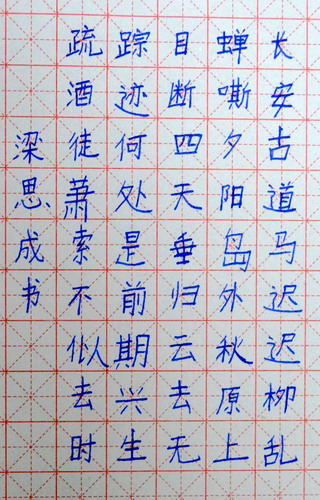 长安古道马迟迟柳乱
蝉嘶夕阳岛外秋原上
目断四天垂归云去无
踪迹何处是前期兴生
疏酒徒萧索不似去时
梁思成书